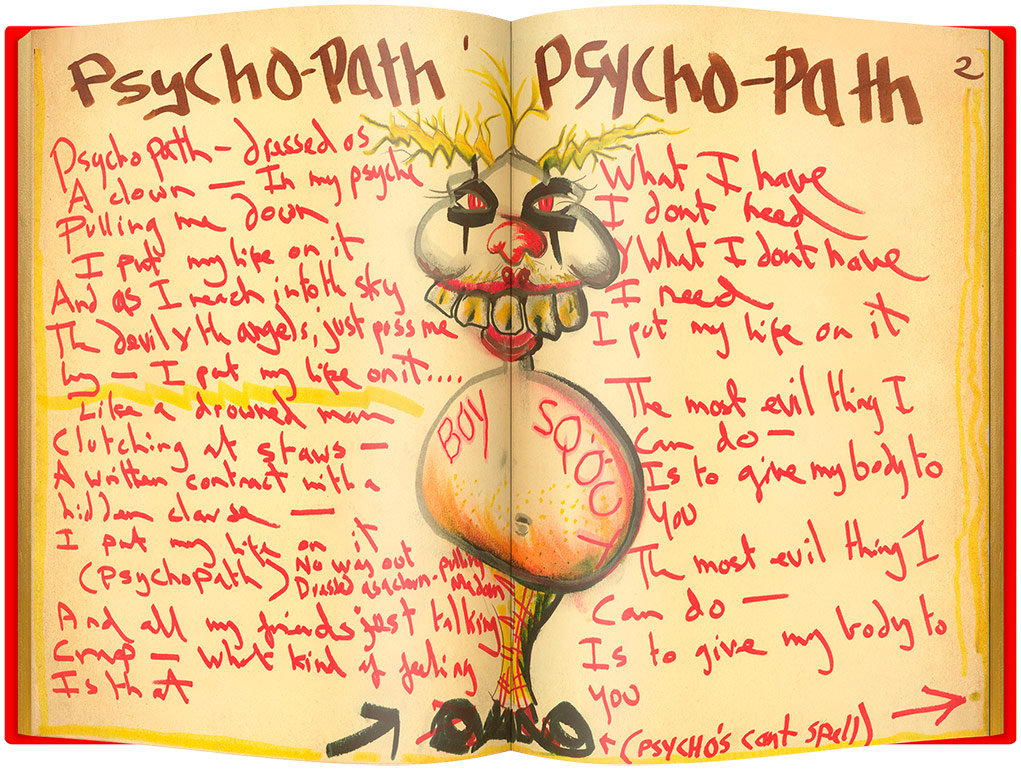 Psycho-Path
Psycho path - dressed as
A clown - In my psyche
Pulling me down
I put my life on it
And as I reach into th sky
Th devil y th angels, just pass me
by - I put my life on it....
Like a drowned man
Clutching at staws -
A written contract with a
hidden clause -
I put my life on it
(psychopath) No way out
Dressed as a clown - pulling
Me down
And all my friends just talking
Crap - What kind of feeling
Is that
BOY SQOUY
Psycho-Path
2
What I have
I dont need
What I dont have
I need
I put my life on it
The most evil thing I
can do -
Is to give my body to
you
Th most evil thing I
Can do -
Is to give my body to
you
(psycho's cant spell)